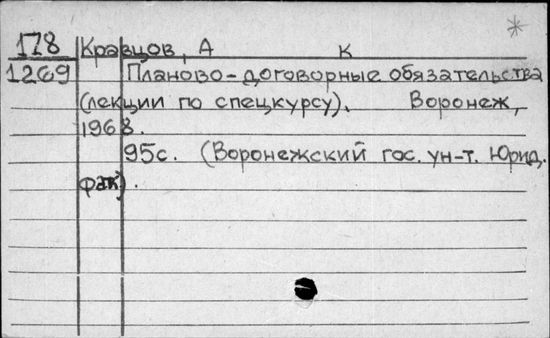 *
178 Кравцов, А К
1269 Планово-договорные обязательства
(лекции по спецкурсу). Воронеж,
1968.
95с. (Воронежский гос. ун-т. Юрид.
фак).